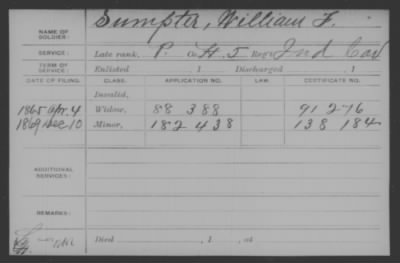 NAME OF SOLDIER: Sumpter, William F.
SERVICE: Late rank, P. Co. H. 5 Reg't Ind Cav
TERM OF SERVICE: Enlisted , 1 Discharged , 1
DATE OF FILING. CLASS. APPLICATION NO. LAW. CERTIFICATE NO.
Invalid,
1865 Apr. 4 Widow, 88 388 91 276
1869 Dec 10 Minor, 182 438 138 184
ADDITIONAL SERVICES:
REMARKS:
Died , 1 , at